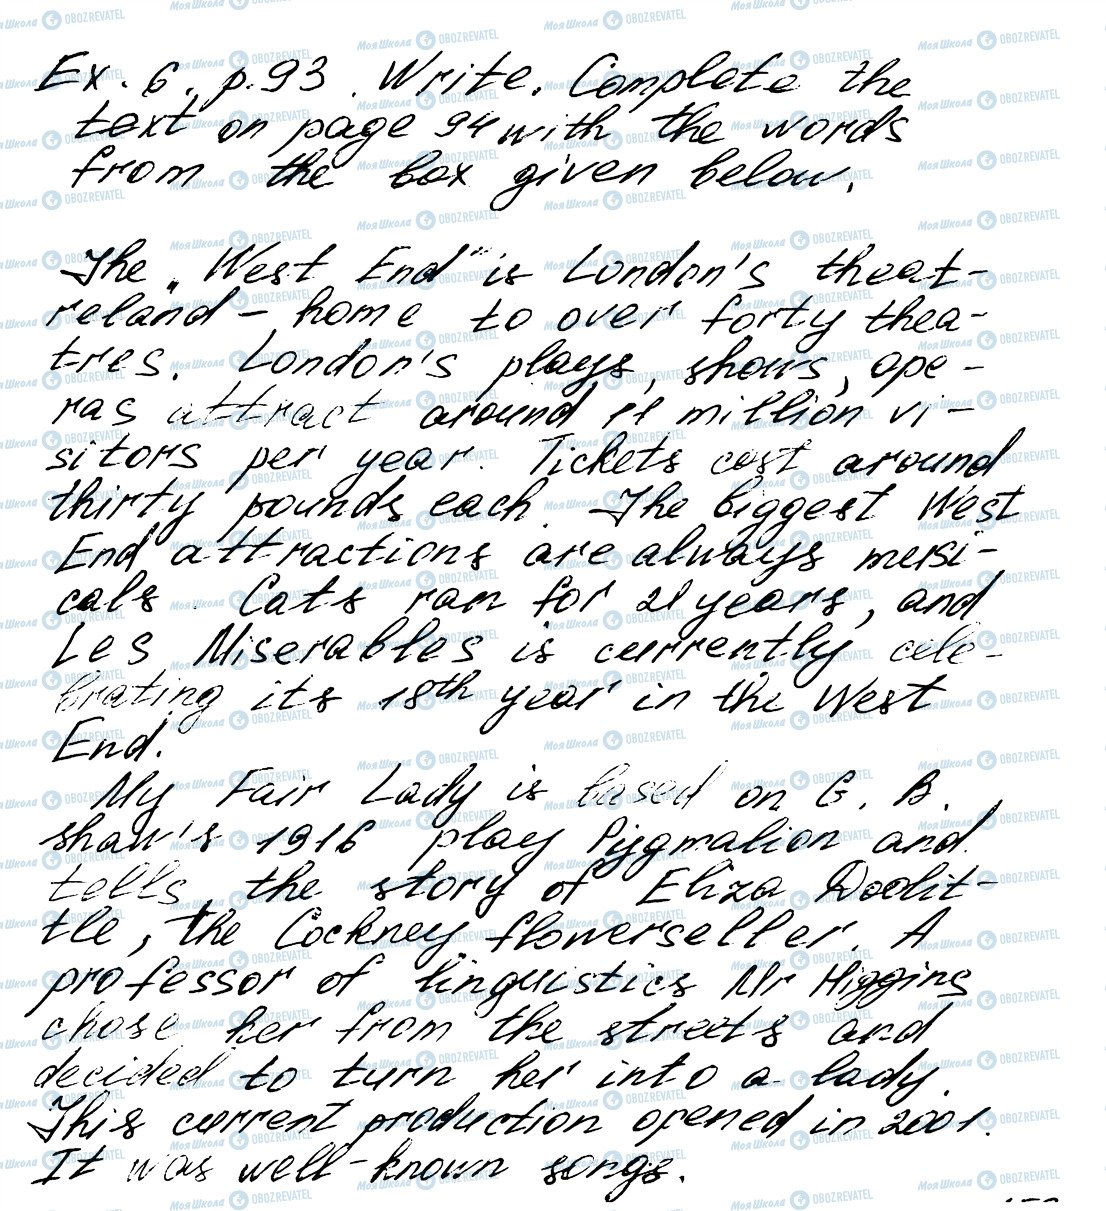 Ex. 6. p. 93. Write. Complete the
text on page 94 with the words
from the box given below.
The „West End" is London's theat-
reland – home to over forty thea-
tres. London's plays, shows, ope-
ras attract around 11 million vi-
sitors per year. Tickets cost around
thirty pounds each. The biggest West
End attractions are always musi-
cals. Cats ran for 21 years, and
Les Miserables is currently cele-
brating its 18th year in the West
End.
My Fair Lady is based on G. B.
Shaw's 1916 play Pygmalion and
tells the story of Eliza Doolit-
tle, the Cockney flowerseller. A
professor of linguistics Mr Higgins
chose her from the streets and
decided to turn her into a lady.
This current production opened in 2001.
It was well-known songs.